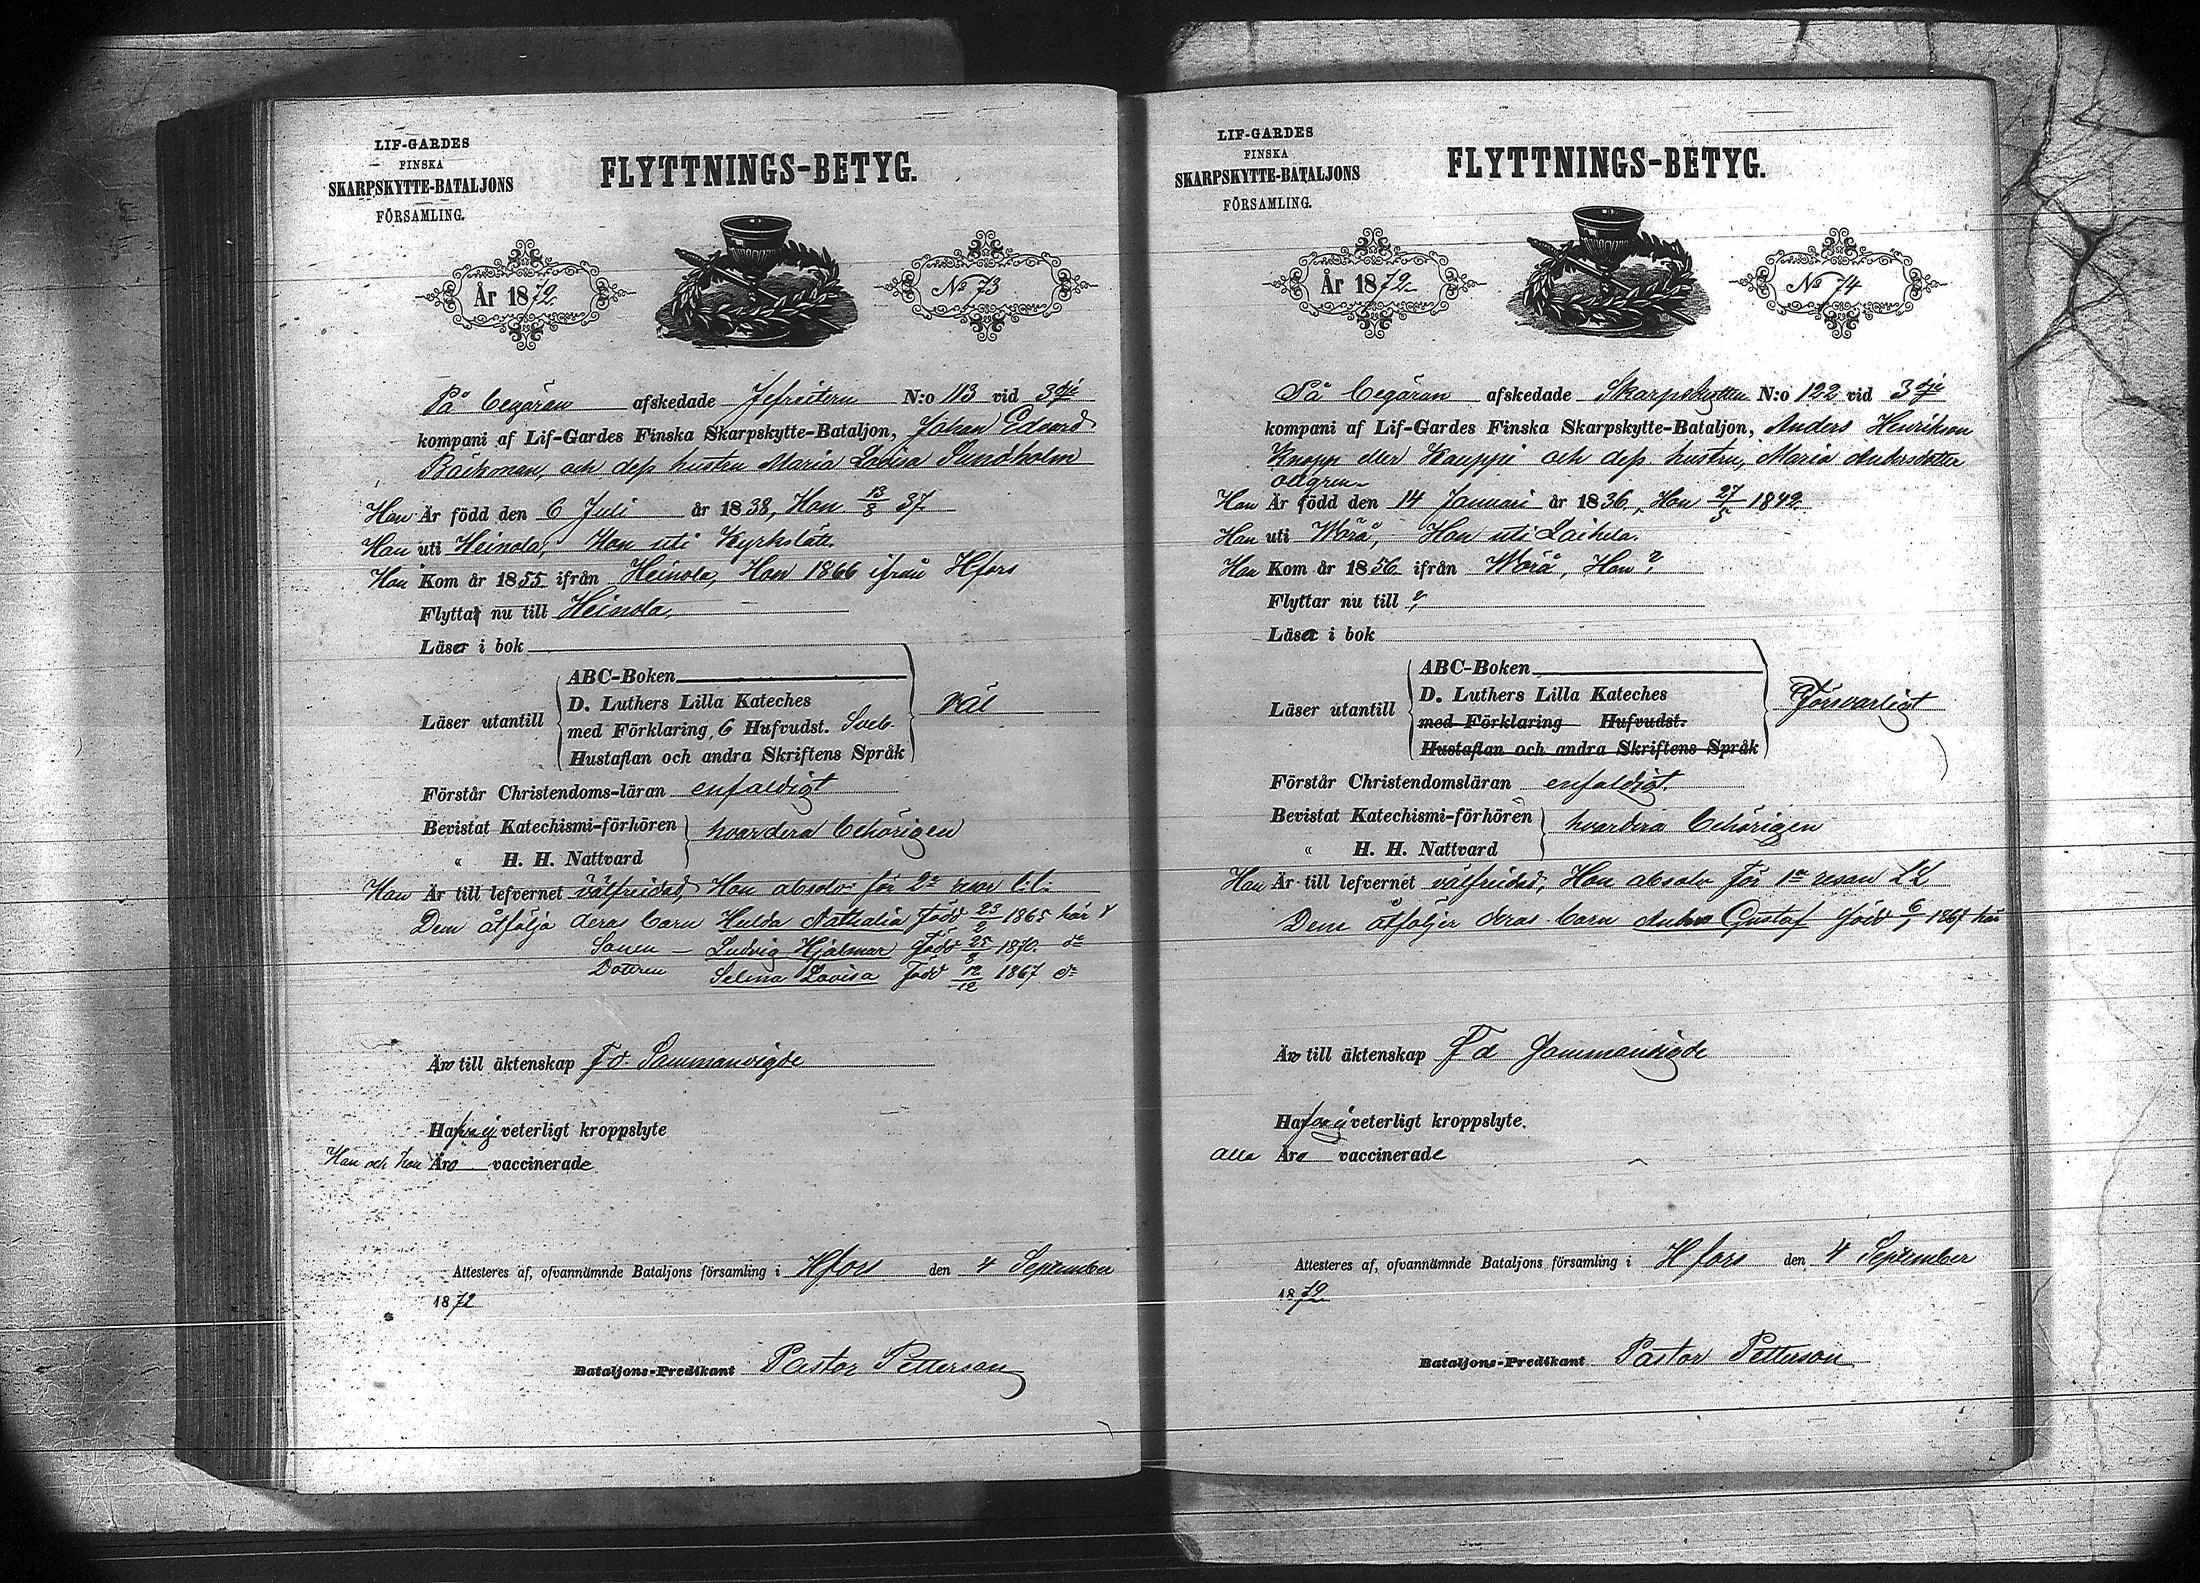 LIF-GARDES
FINSKA
SKARPSKYTTE-BATALJONS
FÖRSAMLING.
FLYTTNINGS-BETYG.
År 1872
No 73
På begäran afskedade Jefreitern N:o 113 vid 3dje
kompani af Lif-Gardes Finska Skarpskytte-Bataljon, Johan Edvard
och dess hustru Maria Lovisa Sundholm
Han Är född den 6 Juli år 1838, Hon 13/8 37
Han uti Heinola, Hon uti Kyrkslätt.
Han Kom år 1855 ifrån Heinola, Hon 1866 ifrån Hfors
Flyttar nu till Heinola,
Läser i bok
ABC-Boken
D. Luthers Lilla Kateches
Läser utantill
väl
med Förklaring, 6 Hufvudst. Sveb.
Hustaflan och andra Skriftens Språk
Förstår Christendoms-läran enfaldigt
Bevistat Katechismi-förhören
hvardera behörigen
" H. H. Nattvard
Han Är till lefvernet välfreidad, Hon absolv: för 2a resor l.l.
Dem åtfölja deras barn Hulda Nathalia född 23/2 1865 här
Sonen – Ludvig Hjalmar född 1870. do
Dottren Selma Lovisa född 12/12 1867 do
Äro till äktenskap Fd Sammanvigde
Hafva ej veterligt kroppslyte
Han och hon Äro vaccinerade
Attesteres af, ofvannämnde Bataljons församling i Hfors den 4 September
1872
Bataljons-Predikant Pastor Petterson
LIF-GARDES
FINSKA
SKARPSKYTTE-BATALJONS
FÖRSAMLING.
FLYTTNINGS-BETYG.
År 1872
No 74
På begäran afskedade Skarpskytten N:o 122 vid 3dje
kompani af Lif-Gardes Finska Skarpskytte-Bataljon, Anders Henrikson
Knapp eller Kauppi och dess hustru, Maria Andersdotter
Han Är född den 14 Januari år 1836, Hon 27/5 1842.
Han uti Wörå, Hon uti Laihela.
Han Kom år 1856 ifrån Wörå, Hon ?
Flyttar nu till ?
Läser i bok
ABC-Boken
D. Luthers Lilla Kateches
Läser utantill
Försvarligt
med Förklaring Hufvudst.
Hustaflan och andra Skriftens Språk
Förstår Christendomsläran enfaldigt.
Bevistat Katechismi-förhören
hvardera behörigen
" H. H. Nattvard
Han Är till lefvernet välfreidad, Hon absolv för 1a resan LL
Dem åtföljer deras barn Gustaf född 1867 här
Äro till äktenskap Fd Sammanvigde
Hafva ej veterligt kroppslyte.
alla Äro vaccinerade
Attesteres af, ofvannämnde Bataljons församling i Hfors den 4 September
1872
Bataljons-Predikant Pastor Petterson